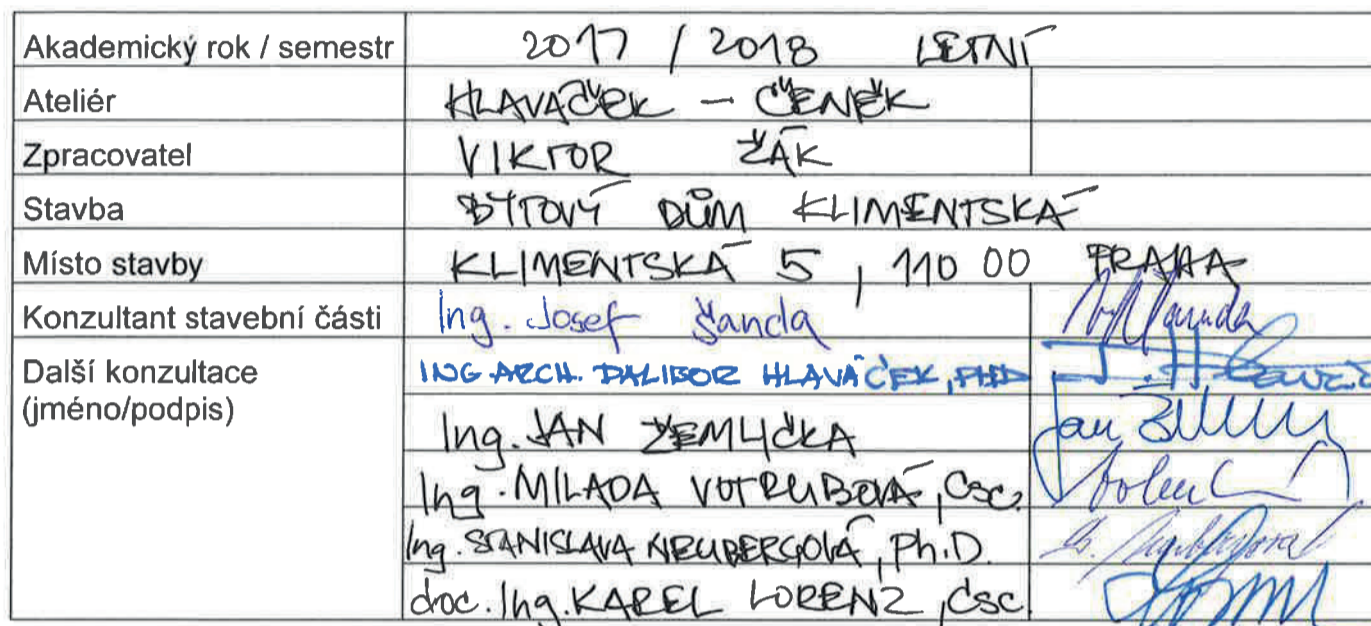 Akademický rok / semestr 2017 / 2018 LETNÍ
Ateliér HLAVÁČEK – ČENĚK
Zpracovatel VIKTOR ŽÁK
Stavba BYTOVÝ DŮM KLIMENTSKÁ
Místo stavby KLIMENTSKÁ 5, 110 00 PRAHA
Konzultant stavební části Ing. Josef Šanda
Další konzultace ING ARCH. DALIBOR HLAVÁČEK, PHD
(jméno/podpis)
Ing. JAN ŽEMLIČKA
Ing. MILADA VOTRUBOVÁ, CSc.
Ing. STANISLAVA NEUBERGOVÁ, Ph.D.
doc. Ing. KAREL LORENZ, CSc.